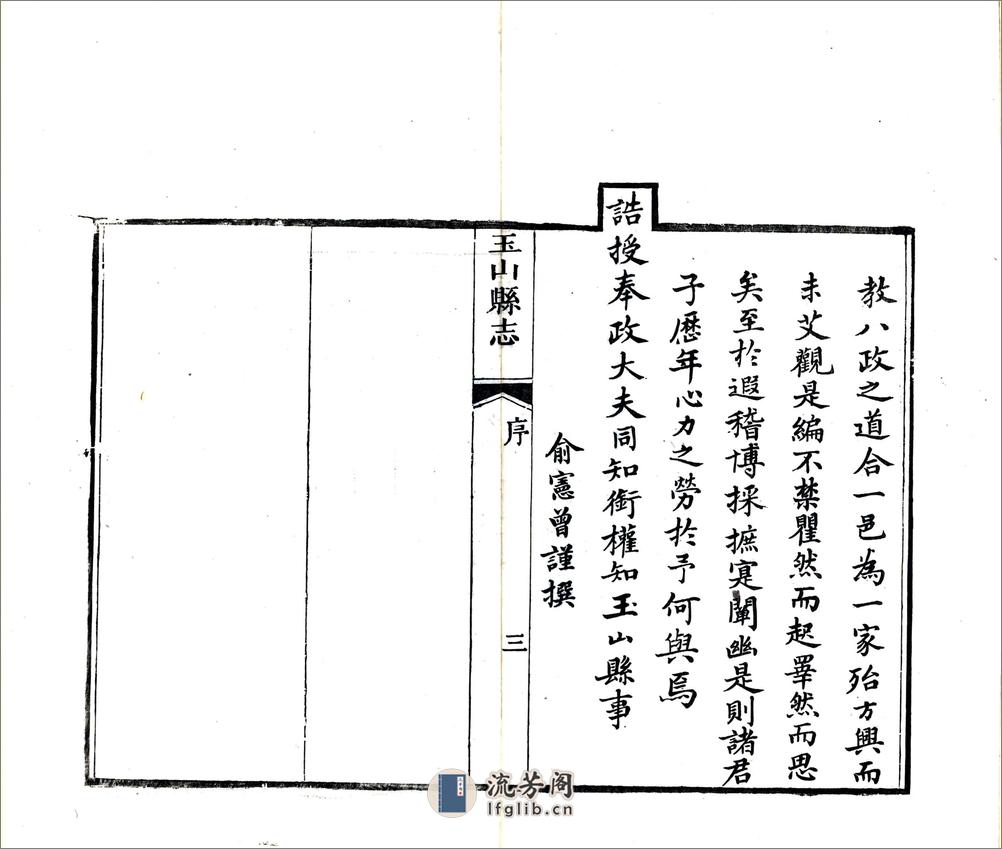 教八政之道合一邑為一家殆方興而
未艾觀是編不禁瞿然而起睪然而思
矣至於遐稽博採摭寔闡幽是則諸君
子歷年心力之勞於予何與焉
誥授奉政大夫同知銜權知玉山縣事
俞憲曾謹撰
玉山縣志
序
三
流芳阁
lfglib.cn